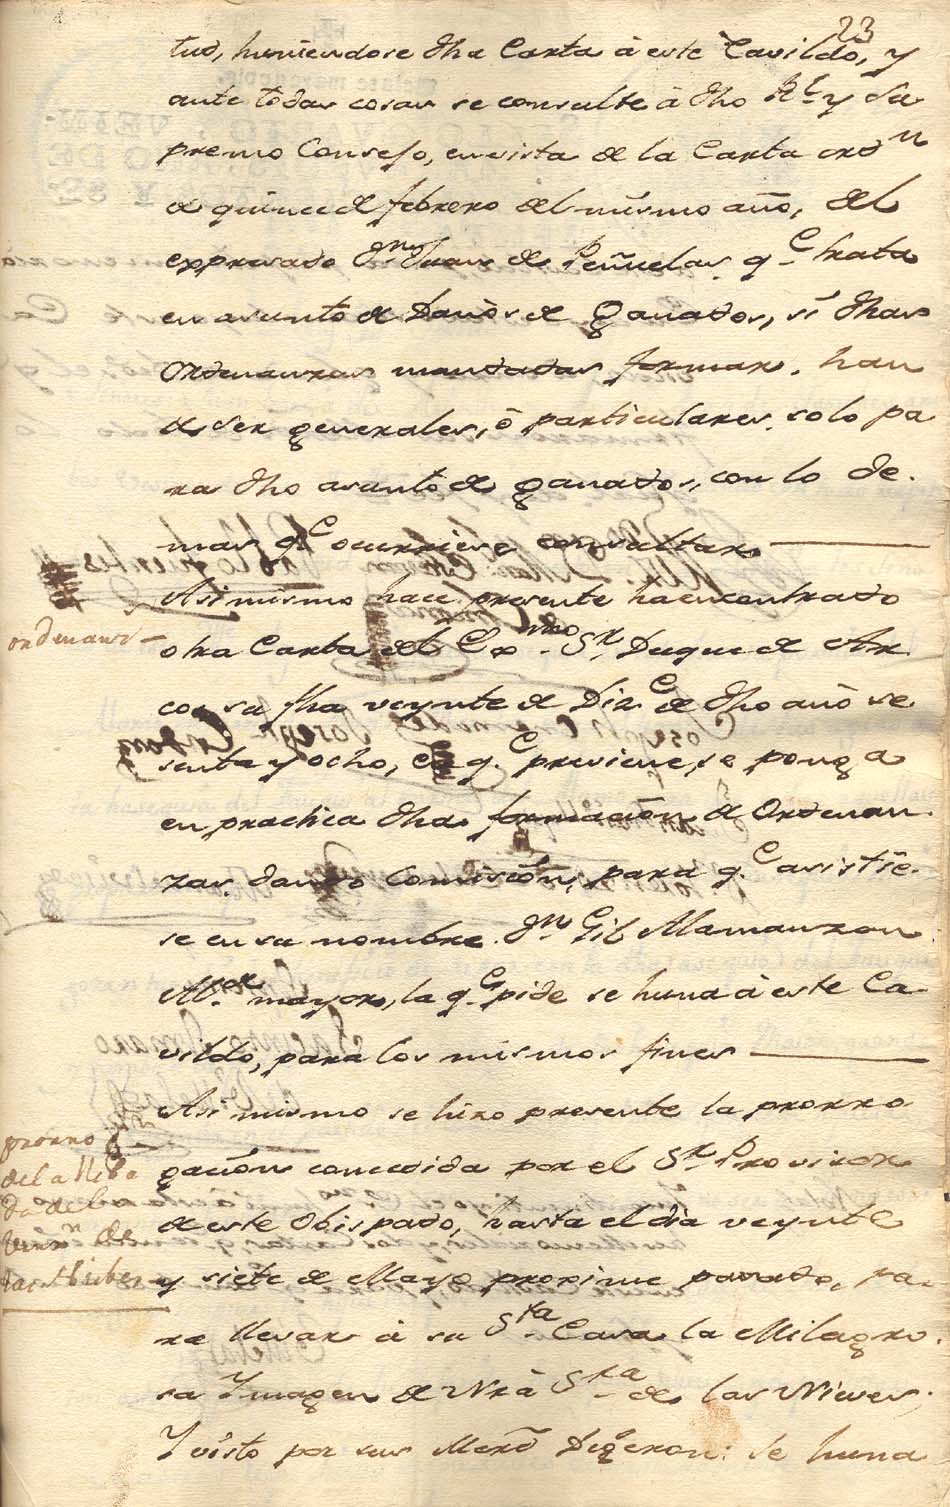 23
tud, huniendose dha Carta â este Cavildo, y
ante todas cosas se consulte â dho Rl. y Su
premo Consejo, en vista de la Carta ordn
de quince de febrero del mismo año, del
expresado Dn. Juan de Peñuelas, qe. trata
en asunto de Daños de Ganados, si dhas
Ordenanzas mandadas formar, han
de ser generales, ô particulares, solo pa
ra dho asunto de ganados, con lo de-
mas qe ocurriese consultar
ordenanzs
Asi mismo hace presente ha encontrado
otra Carta del Exmo. Sr. Duque de Ar
cos su fha veynte de Dize. de dho año se
senta y ocho, en qe. previene, se ponga
en practica dha formacion de Ordenan-
zas, dando Comision, para qe. asistie-
se en su nombre Dn. Gil Mamanzon
Alcde. mayor, la qe. pide se huna â este Ca-
vildo, para los mismos fines
Asi mismo se hizo presente la prorro
prorro
gacion concedida por el Sr. Provisor
de este Obispado, hasta el dia veynte
y siete de Mayo proximo pasado, pa-
ra llevar â su Sta. Casa la Milagro-
sa Ymagen de Nrâ Sra. de las Nieves
Y visto por sus Mercd. Digeron: Se huna